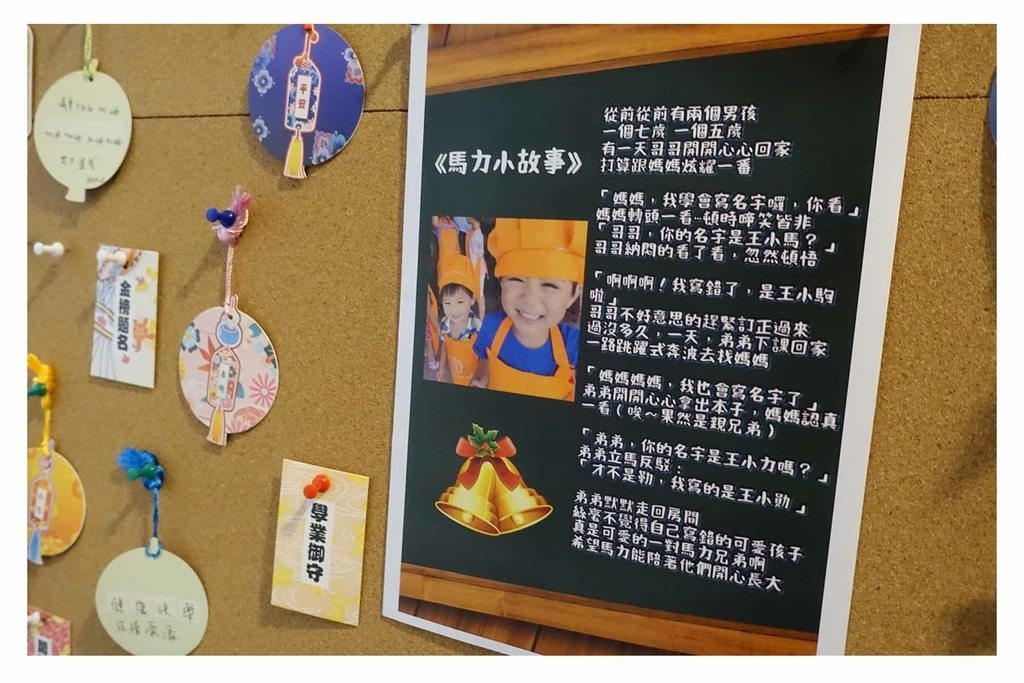 辛丑
金榜題名
學業御守
健康快樂
《馬力小故事》
從前從前有兩個男孩
一個七歲 一個五歲
有一天哥哥開開心心回家
打算跟媽媽炫耀一番
「媽媽，我學會寫名字囉，你看」
媽媽轉頭一看…頓時啼笑皆非
「哥哥，你的名字是王小馬？」
哥哥納悶的看了看，忽然頓悟
「啊啊啊！我寫錯了，是王小駒
啦」
哥哥不好意思的趕緊訂正過來
過沒多久，一天，弟弟下課回家
一路跳躍式奔波去找媽媽
「媽媽媽媽，我也會寫名字了」
弟弟開開心心拿出本子，媽媽認真
一看（唉～果然是親兄弟）
「弟弟，你的名字是王小力嗎？」
弟弟立馬反駁：
「才不是勒，我寫的是王小勛」
弟弟默默走回房間
絲毫不覺得自己寫錯的可愛孩子
真是可愛的一對馬力兄弟啊
希望馬力能陪著他們開心長大